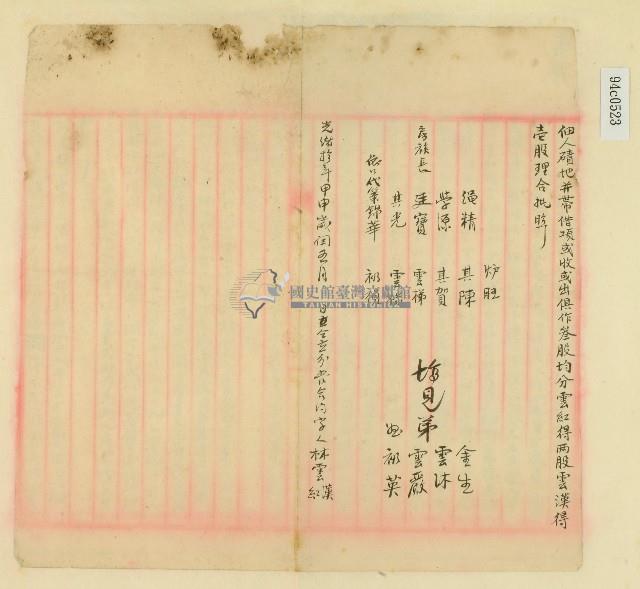 佃人磧地并帶借項或收或出俱作叁股均分雲紅得兩股雲漢得
壹股理合批照
炉旺
繩精 其陳 金生
紫源 其賀 雲沐
房族長 廷寶 雲梯 塲見 弟雲嚴
其光 姪祁英
依口代筆錦華
光緒拾年甲申歲閏五月 日 仝立分 合約字人林雲漢
紅
國史館臺灣文獻館
TAIWAN HISTORICA
94c0523